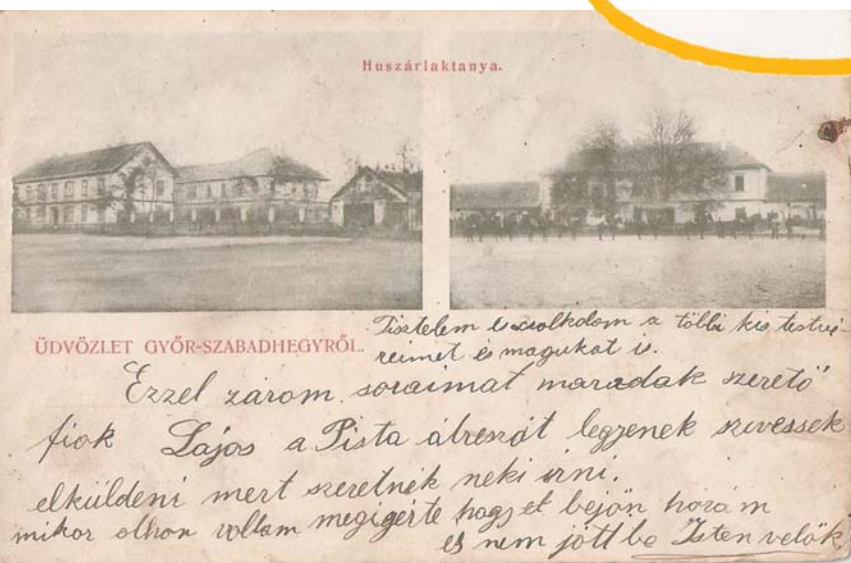 Huszárlaktanya.
ÜDVÖZLET GYŐR-SZABADHEGYRŐL.
Tisztelem és csolkolom a többi kis testvé-
reimet és magukat is.
Ezzel zárom soraimat maradok szerető
fiok Lajos a Pista átreszát legyenek szivessek
elküldeni mert szeretnék neki irni.
mikor othon voltam megigérte hogy et bejön hozám
és nem jött be Isten velök